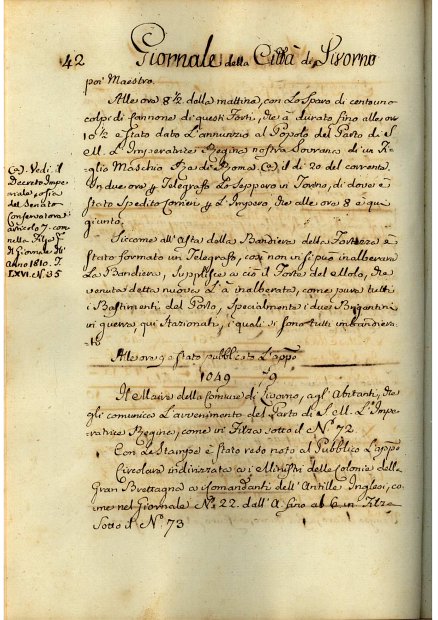 42 Giornale della Città di Livorno
poi Maestro.
Alle ore 8 1/2 della mattina, con lo sparo di centouno
colpi di Cannone di questi Forti, che à durato fino alle ore
10 1/2 è stato dato l'annunzio al Popolo del Parto di S.
M. l'Imperatrice Regina nostra Sovrana di un Fi-
glio Maschio Re di Roma (a) il dì 20 del corrente.
In due ore il Telegrafo lo seppero in Torino, di dove è
stato spedito Corrieri l'Impero, che alle ore 8 è qui
giunto.
Siccome all'Asta della Bandiera della Fortezza è
stato formato un Telegrafo, così non vi si può inalberare
la Bandiera, supplisce a ciò il Forte del Molo, che
venuta della nuova l'à inalberata, come pure tutti
i Bastimenti del Porto, specialmente i due Brigantini
in guerra qui stazionati, i quali si sono tutti imbandiera-
ti.
Alle ore 9 è stato pubblicato l'app.o
1049 9
Il Maire della Comune di Livorno, agl'Abitanti, che
gli comunica l'avvenimento del Parto di S. M. l'Impe-
ratrice Regina, come in Filza sotto il N.o 72
Con le Stampe è stato reso noto al Pubblico l'app.a
Circolare indirizzata a i Ministri delle Colonie della
Gran Brettagna a Comandanti dell'Antille Inglesi, co-
me nel Giornale N.o 22. dall'A. fino al 6 in Filza
sotto il N.o 73
(a). Vedi il
Decreto Impe-
riale, o sia
del Senato
Conservatore
articolo 7. com-
nella Filza
di Giornale dell'
anno 1810. T.
LXVI. N.o 35